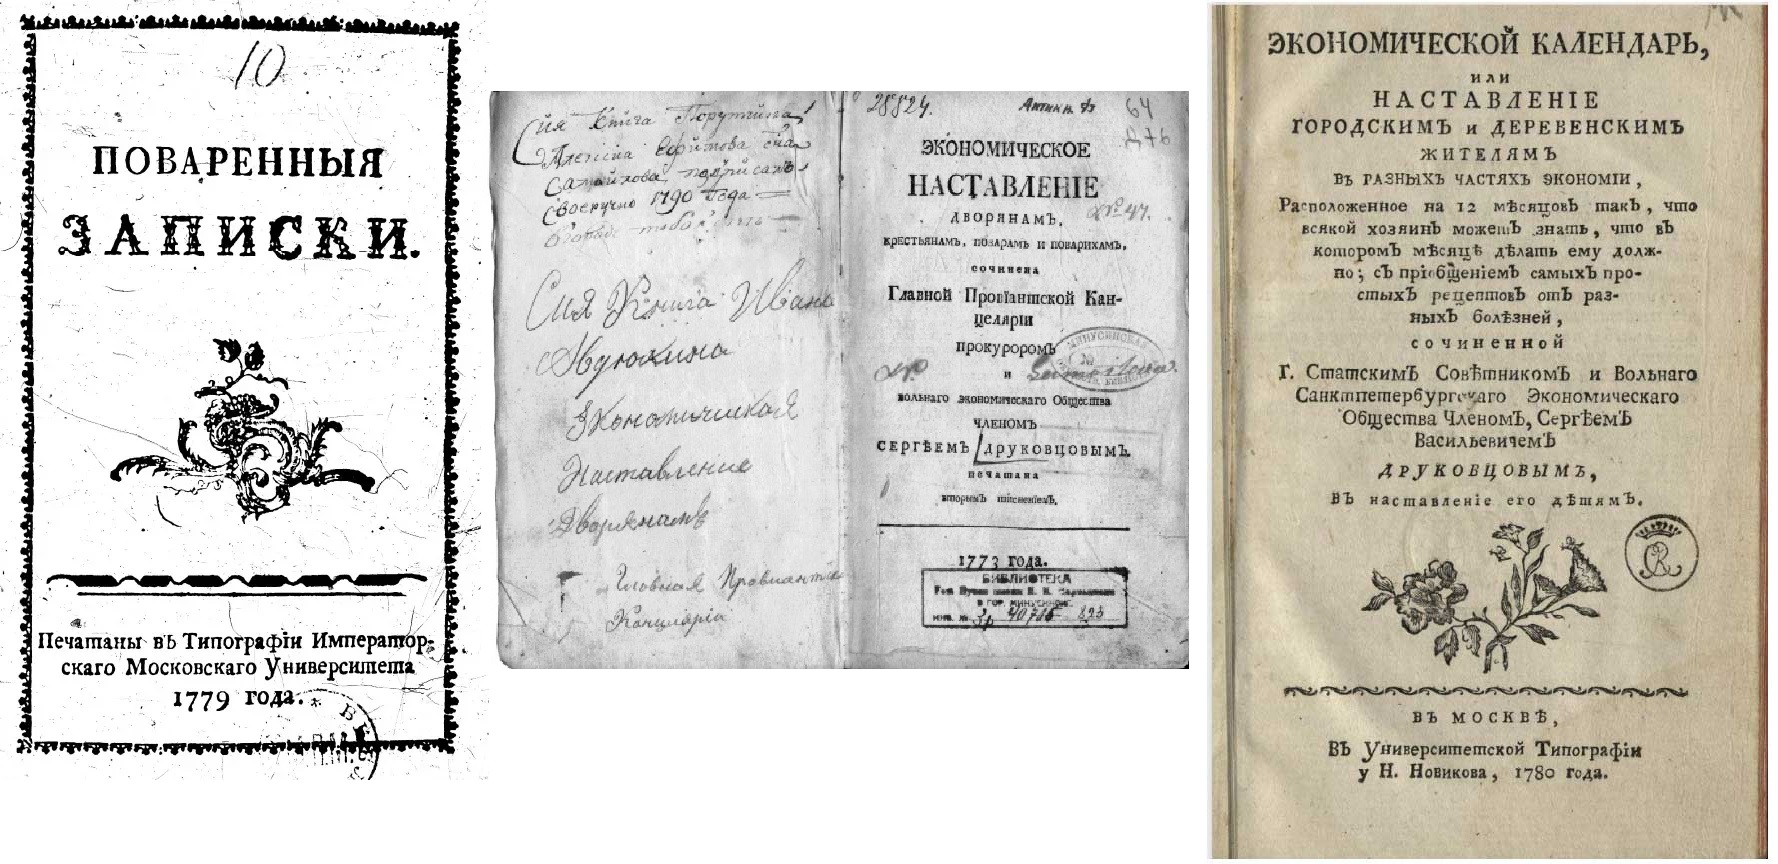 10
ПОВАРЕННЫЯ
ЗАПИСКИ.
Печатаны въ Типографіи Император-
скаго Московскаго Университета
1779 года.
Сія книга Порутчика
своеручно 1790 года
Сия Книга Ивана
Економическая
Наставление
Дворянамъ
Главная Провиантска
Канцлярія
28824.
64
ЭКОНОМИЧЕСКОЕ
НАСТАВЛЕНІЕ
ДВОРЯНАМЪ,
№ 47.
КРЕСТЬЯНАМЪ, ПОВАРАМЪ И ПОВАРИХАМЪ,
сочинена
Главной Провіантской Кан-
целяріи
прокуроромъ
и
вольнаго экономическаго Общества
членомъ
СЕРГѢЕМЪ ДРУКОВЦОВЫМЪ.
печатана
вторымъ тисненіемъ.
1773 года.
БИБЛИОТЕКА
ЭКОНОМИЧЕСКОЙ КАЛЕНДАРЬ,
ИЛИ
НАСТАВЛЕНІЕ
ГОРОДСКИМЪ и ДЕРЕВЕНСКИМЪ
ЖИТЕЛЯМЪ
ВЪ РАЗНЫХЪ ЧАСТЯХЪ ЭКОНОМІИ,
Расположенное на 12 мѣсяцовъ такъ, что
всякой хозяинъ можетъ знать, что въ
которомъ мѣсяцѣ дѣлать ему долж-
но; съ пріобщеніемъ самыхъ про-
стыхъ рецептовъ отъ раз-
ныхъ болѣзней,
сочиненной
Г. Статскимъ Совѣтникомъ и Вольнаго
Санктпетербургскаго Экономическаго
Общества Членомъ, Сергѣемъ
Васильевичемъ
ДРУКОВЦОВЫМЪ,
ВЪ наставленіе его дѣтямъ.
ВЪ МОСКВѢ,
ВЪ Университетской Типографіи
у Н. Новикова, 1780 года.